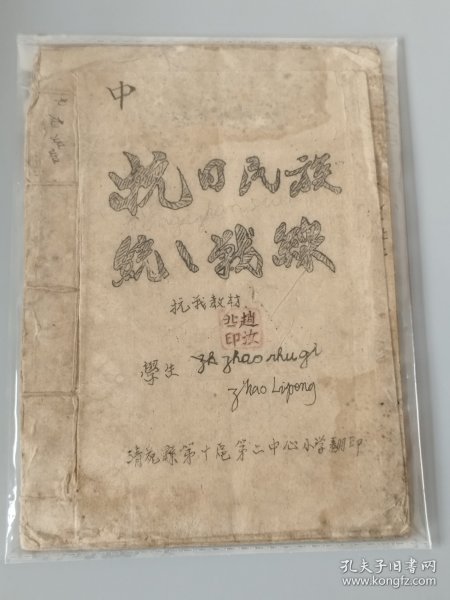 中
抗日民族
統一戰線
抗战教材
趙汝
印
學生 zhao shu gi
zhao Lipong
清苑縣第十區第二中心小学翻印
孔夫子旧书网
www.kongfz.com